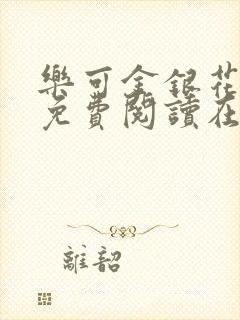 樂可金銀花
免費閱讀在
離韶